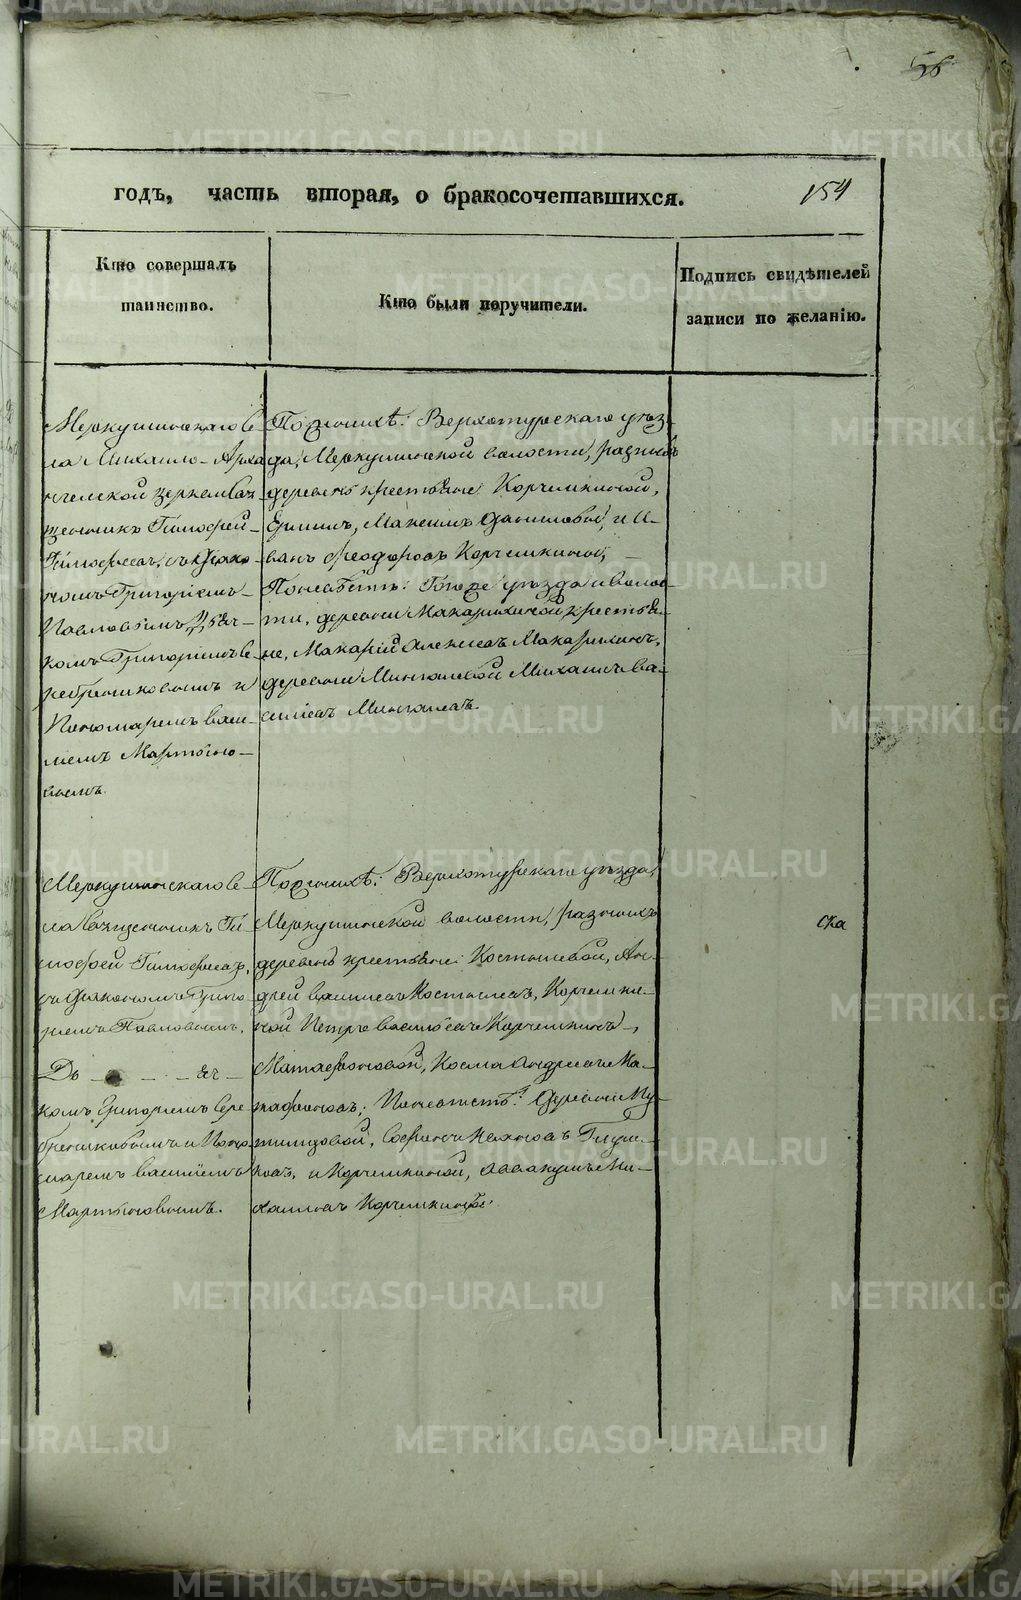 годъ, часть вторая, о бракосочетавшихся.
154
Кто совершалъ
таинство.
Кто были поручители.
Подпись свидѣтелей
записи по желанію.
Меркушинскаго се-
ла Михаило-Арха-
нгельской церкви свя-
щенникъ Тимофей
Тимофеевъ, съ Діако-
номъ Григоріемъ
Павловымъ, Дьяч-
комъ Григоріемъ Се-
ребрениковымъ и
Пономаремъ Васи-
ліемъ Мартыно-
вымъ.
По женихѣ: Верхотурскаго уѣз-
да, Меркушинской волости, разныхъ
деревень крестьяне: Корчемкиной,
Максимъ Даниловы, и И-
ванъ Феодоровъ Корчемкины,
По невѣстѣ: Того же уѣзда и волос-
ти, деревни Макарихиной крестья-
не, Макарій Алексеевъ Макарихинъ,
деревни Мингалевой Михаилъ Ва-
силіевъ Мингалевъ.
Меркушинскаго се-
ла Священникъ Ти-
мофей Тимофеевъ,
съ Діакономъ Григо-
ріемъ Павловымъ,
Дь - - - яч-
комъ Григоріемъ Сере-
брениковымъ и Поно-
маремъ Василіемъ
Мартыновымъ.
По женихѣ: Верхотурскаго уѣзда,
Меркушинской волости, разныхъ
деревень крестьяне: Костылевой, Ан-
дрей Василіевъ Костылевъ, Корчемки-
ной Петръ Василіевъ Корчемкинъ,
Матафоновой, Косма Андреевъ Ма-
тафоновъ; По невѣстѣ: Деревни Пу-
тимцовой, Глуш-
ковъ, и Корчемкиной, Аввакумъ Ми-
хаиловъ Корчемкинъ.
ска
METRIKI.GASO-URAL.RU